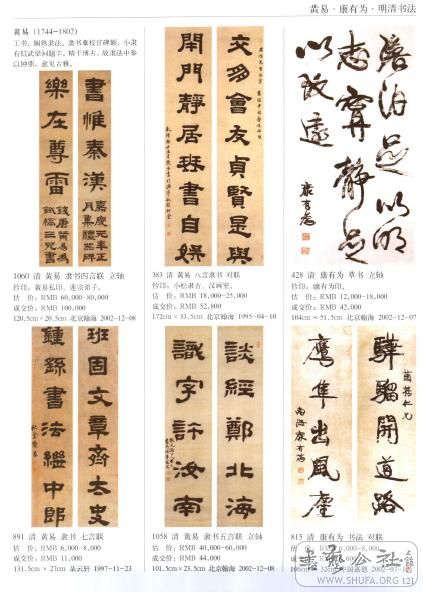 黄易·康有为·明清书法
黄易 (1744—1802)
工书，娴熟隶法。隶书摹校官碑额，小隶
有似武梁祠题字，精于博古，故隶法中参
以钟鼎，愈见古雅。
書惟秦漢
嘉慶元年正
月集禮器碑
樂在尊雷
錢唐黄易為
鐵橋三兄書
1060 清 黄易 隶书四言联 立轴
钤印：黄易私印、莲宗弟子。
估 价：RMB 60,000-80,000
成交价：RMB 100,000
120.5cm×20.5cm 北京翰海 2002-12-08
交多會友貞賢是與
閉門靜居班書自娱
383 清 黄易 八言隶书 对联
钤印：小松隶古、汉画室。
估 价：RMB 18,000-25,000
成交价：RMB 52,800
172cm×33.5cm 北京翰海 1995-04-10
澹泊足以明
志寧靜足
以致遠
康有為
428 清 康有为 草书 立轴
钤印：康有为印。
估 价：RMB 12,000-18,000
成交价：RMB 42,000
104cm×51.5cm 北京翰海 2002-12-07
班固文章齊太史
鍾繇書法繼中郎
秋盦黄易
891 清 黄易 隶书 七言联
估 价：RMB 6,000-8,000
成交价：RMB 11,000
131.5cm×27cm 朵云轩 1997-11-23
談經鄭北海
識字許汝南
1058 清 黄易 隶书五言联 立轴
估 价：RMB 40,000-60,000
成交价：RMB 44,000
101.5cm×23.5cm 北京翰海 2002-12-08
驊騮開道路
仁兄
鷹隼出風塵
南海康有為
815 清 康有为 书法 对联
估 价：RMB 6,000-8,000
成交价：RMB
中国嘉德
書藝公社
WWW.SHUFA.ORG
121